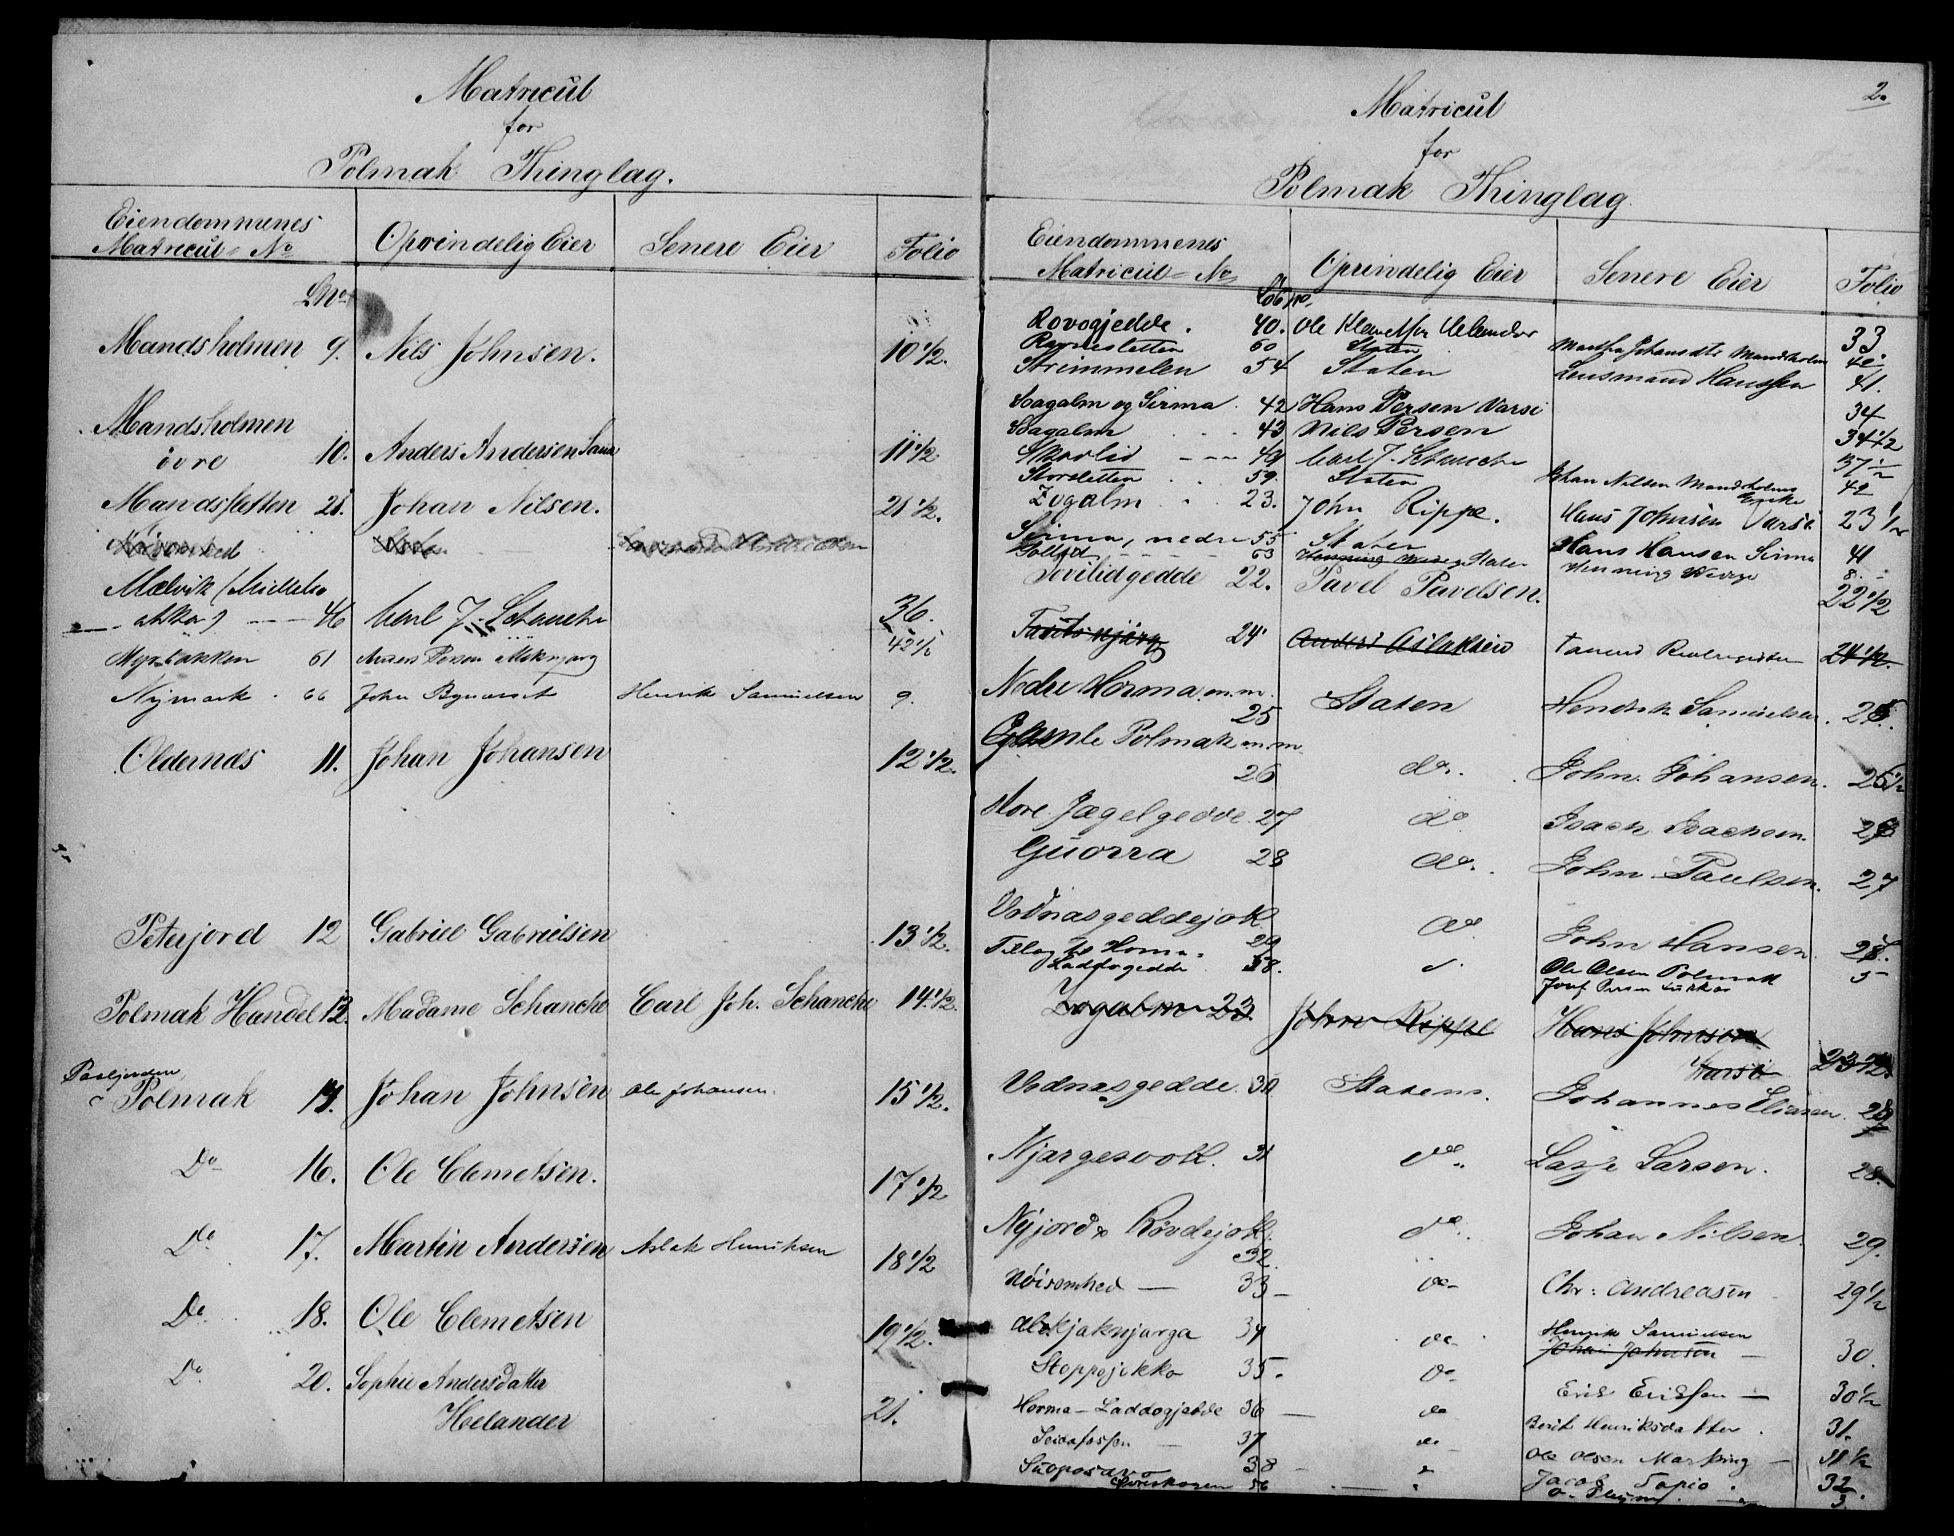 Matricul
for
Polmak Thinglag.
Eiendommenes Matricul-No Oprindelig Eier Senere Eier Folio
LNo
Mandsholmen 9. Nils Johnsen. 10 1/2.
Mandsholmen
övre 10. Anders Andersen 11 1/2
Mandssletten 21. Johan Nilsen. 21 1/2.
Mælvik (Mittel
46 Carl J. Schanche 36.
Myrbakken 61 Anders Persen 42 1/2
Nymark 66 John Henrik Samuelsen 9.
Oldernæs 11. Johan Johansen 12 1/2.
Peterjord 12 Gabriel Gabrielsen 13 1/2.
Polmak Handel 13. Madame Schanche Carl Joh. Schanche 14 1/2.
Polmak 14. Johan Johnsen Ole Johansen. 15 1/2.
Do 16. Ole Clemetsen. 17 1/2
Do 17. Martin Andersen Aslak Henriksen 18 1/2
Do 18. Ole Clemetsen 19 1/2.
Do 20. Sophie Andersdatter
Helander 21.
2.
Matricul
for
Polmak Thinglag.
Eiendommenes Matricul-No Oprindelig Eier Senere Eier Folio
Rovogjedde. 40. Ole Helander 33
60 Staten 42
Strimmelen 54 Staten Lensmand Hanssen 41.
Sagalm og Sirma 42 Hans Persen Varsi 34
Sagalm 43 Nils Persen 34 1/2
Skovlid 49 Carl J. Schanche 37 1/2
Storsletten 59. Staten Johan Nilsen 42
Zogalm 23. John Rippe. Hans Johnsen Varsi 23 1/2
Sirma, nedre 55 Staten Hans Hansen Sirma 41
63 Staten Henning Wedege 8.
Sovilidgedde 22. Pavel Pavelsen. 22 1/2
24 Anders Aslaksen 24 1/2.
Nedre Horma m.m.
25 Staten Hendrik Samuelsen. 25.
Gamle Polmak m.m.
26 do. John Johansen. 25 1/2
Store Jægelgedde 27 do Isach Isachsen. 26
Guorra 28 do. John Paulsen. 27
Vodnasgeddejok
29 do John Hansen. 28.
Tillæg til Horma
Laddogedde 58. Ole Olsen Polmak 5
Zogalm 23. John Rippe Hans Johnsen
Varsi 23 1/2.
Vodnasgedde 30 Statens. Johannes Eliasen. 28
Njargesvok. 31 do. Lasse Larsen. 28
Nyjord & Rövdejok
32. do. Johan Nilsen. 29.
Nöisomhed — 33 do Chr: Andreasen 29 1/2
34 do Henrik Samuelsen
Johan Johnsen 30.
Stoppojokka 35. do Erik Eriksen — 30 1/2
Horma-Laddogjedde 36 do Berit Henriksdatter. 31.
37 do Ole Olsen 31 1/2
38 Jacob Tapio. 32.
56 3.